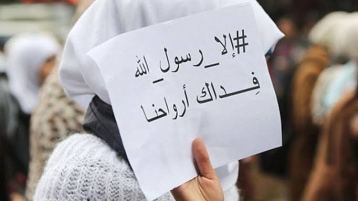 #إلا_رسول_الله
فِداك أرواحنا